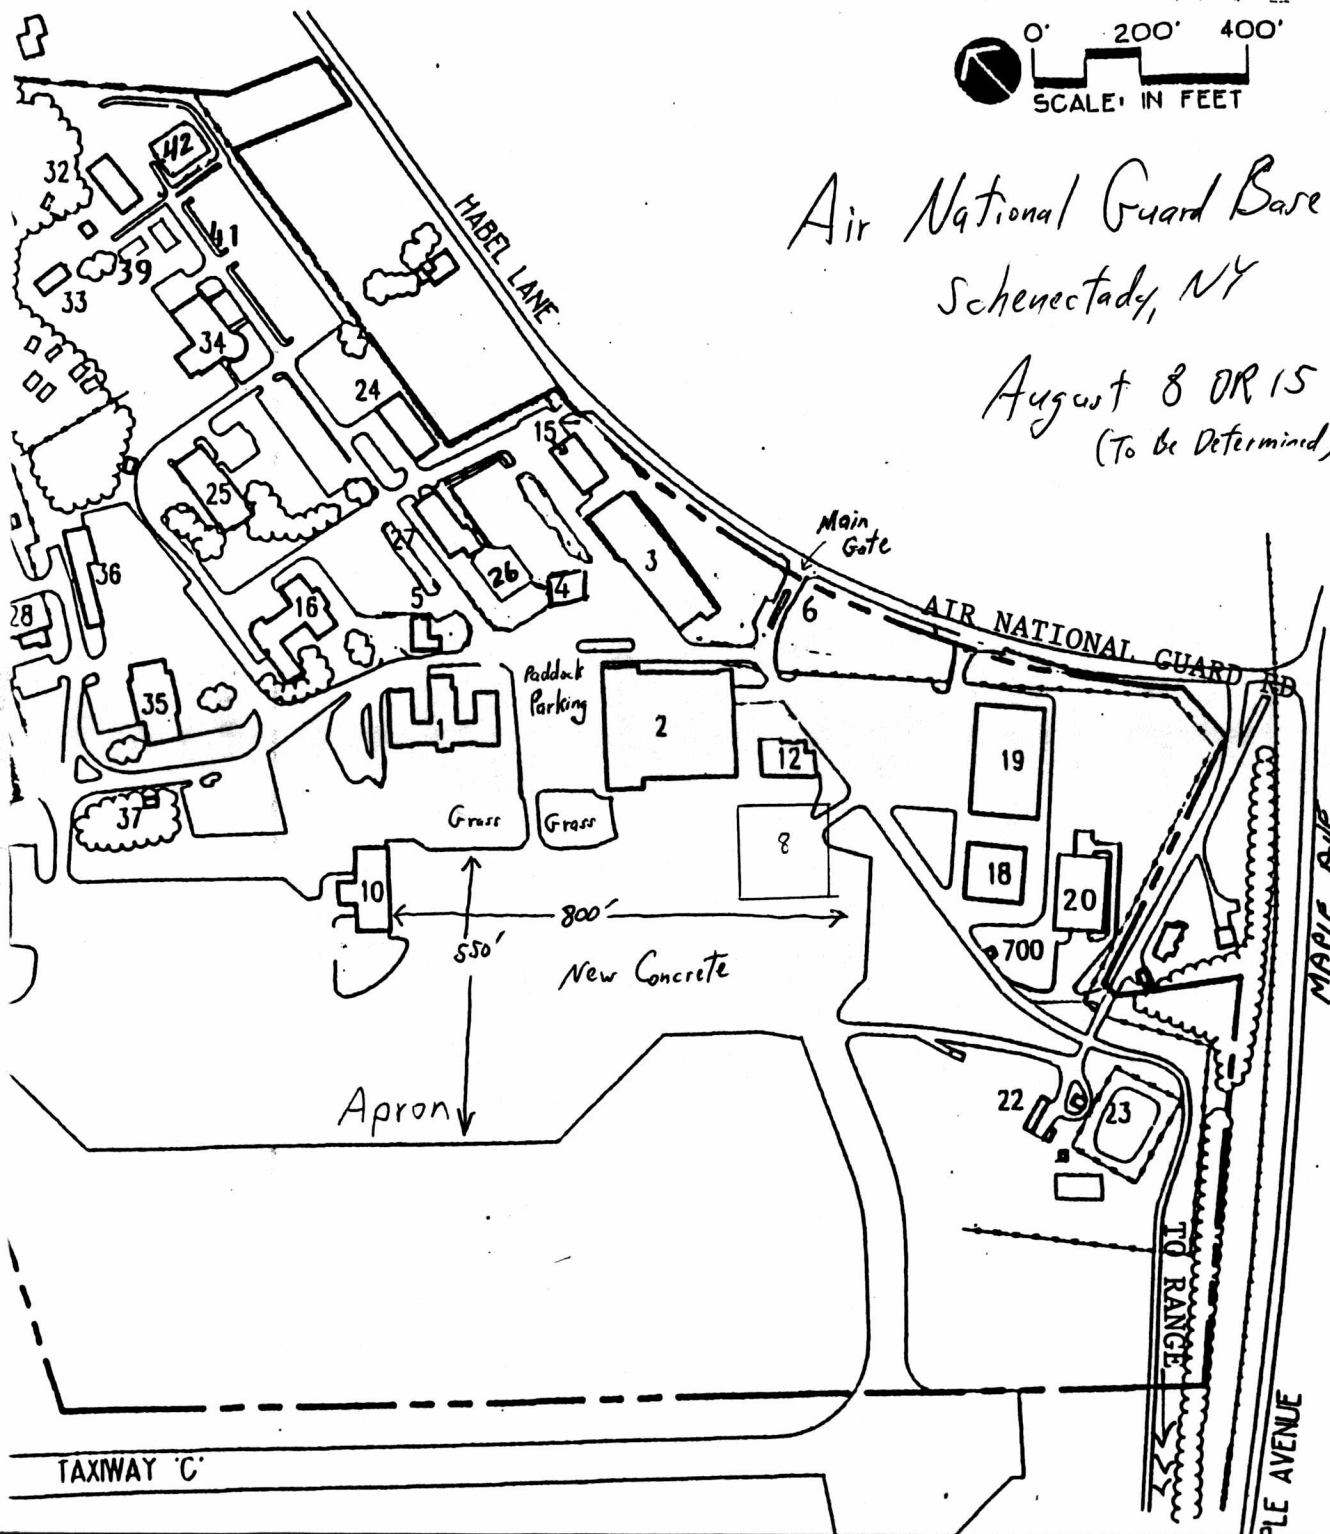 0' 200' 400'
SCALE: IN FEET
Air National Guard Base
Schenectady, NY
August 8 OR 15
(To Be Determined)
HABEL LANE
42
32
41
39
33
34
24
15
25
27
3
Main
Gate
36
26
4
5
16
28
6
AIR NATIONAL GUARD RD
Paddock
Parking
35
1
2
12
19
37
Grass
Grass
8
MAPLE AVE
18
10
20
800'
550'
700
New Concrete
Apron
22
23
TO RANGE
TAXIWAY 'C'
PLE AVENUE